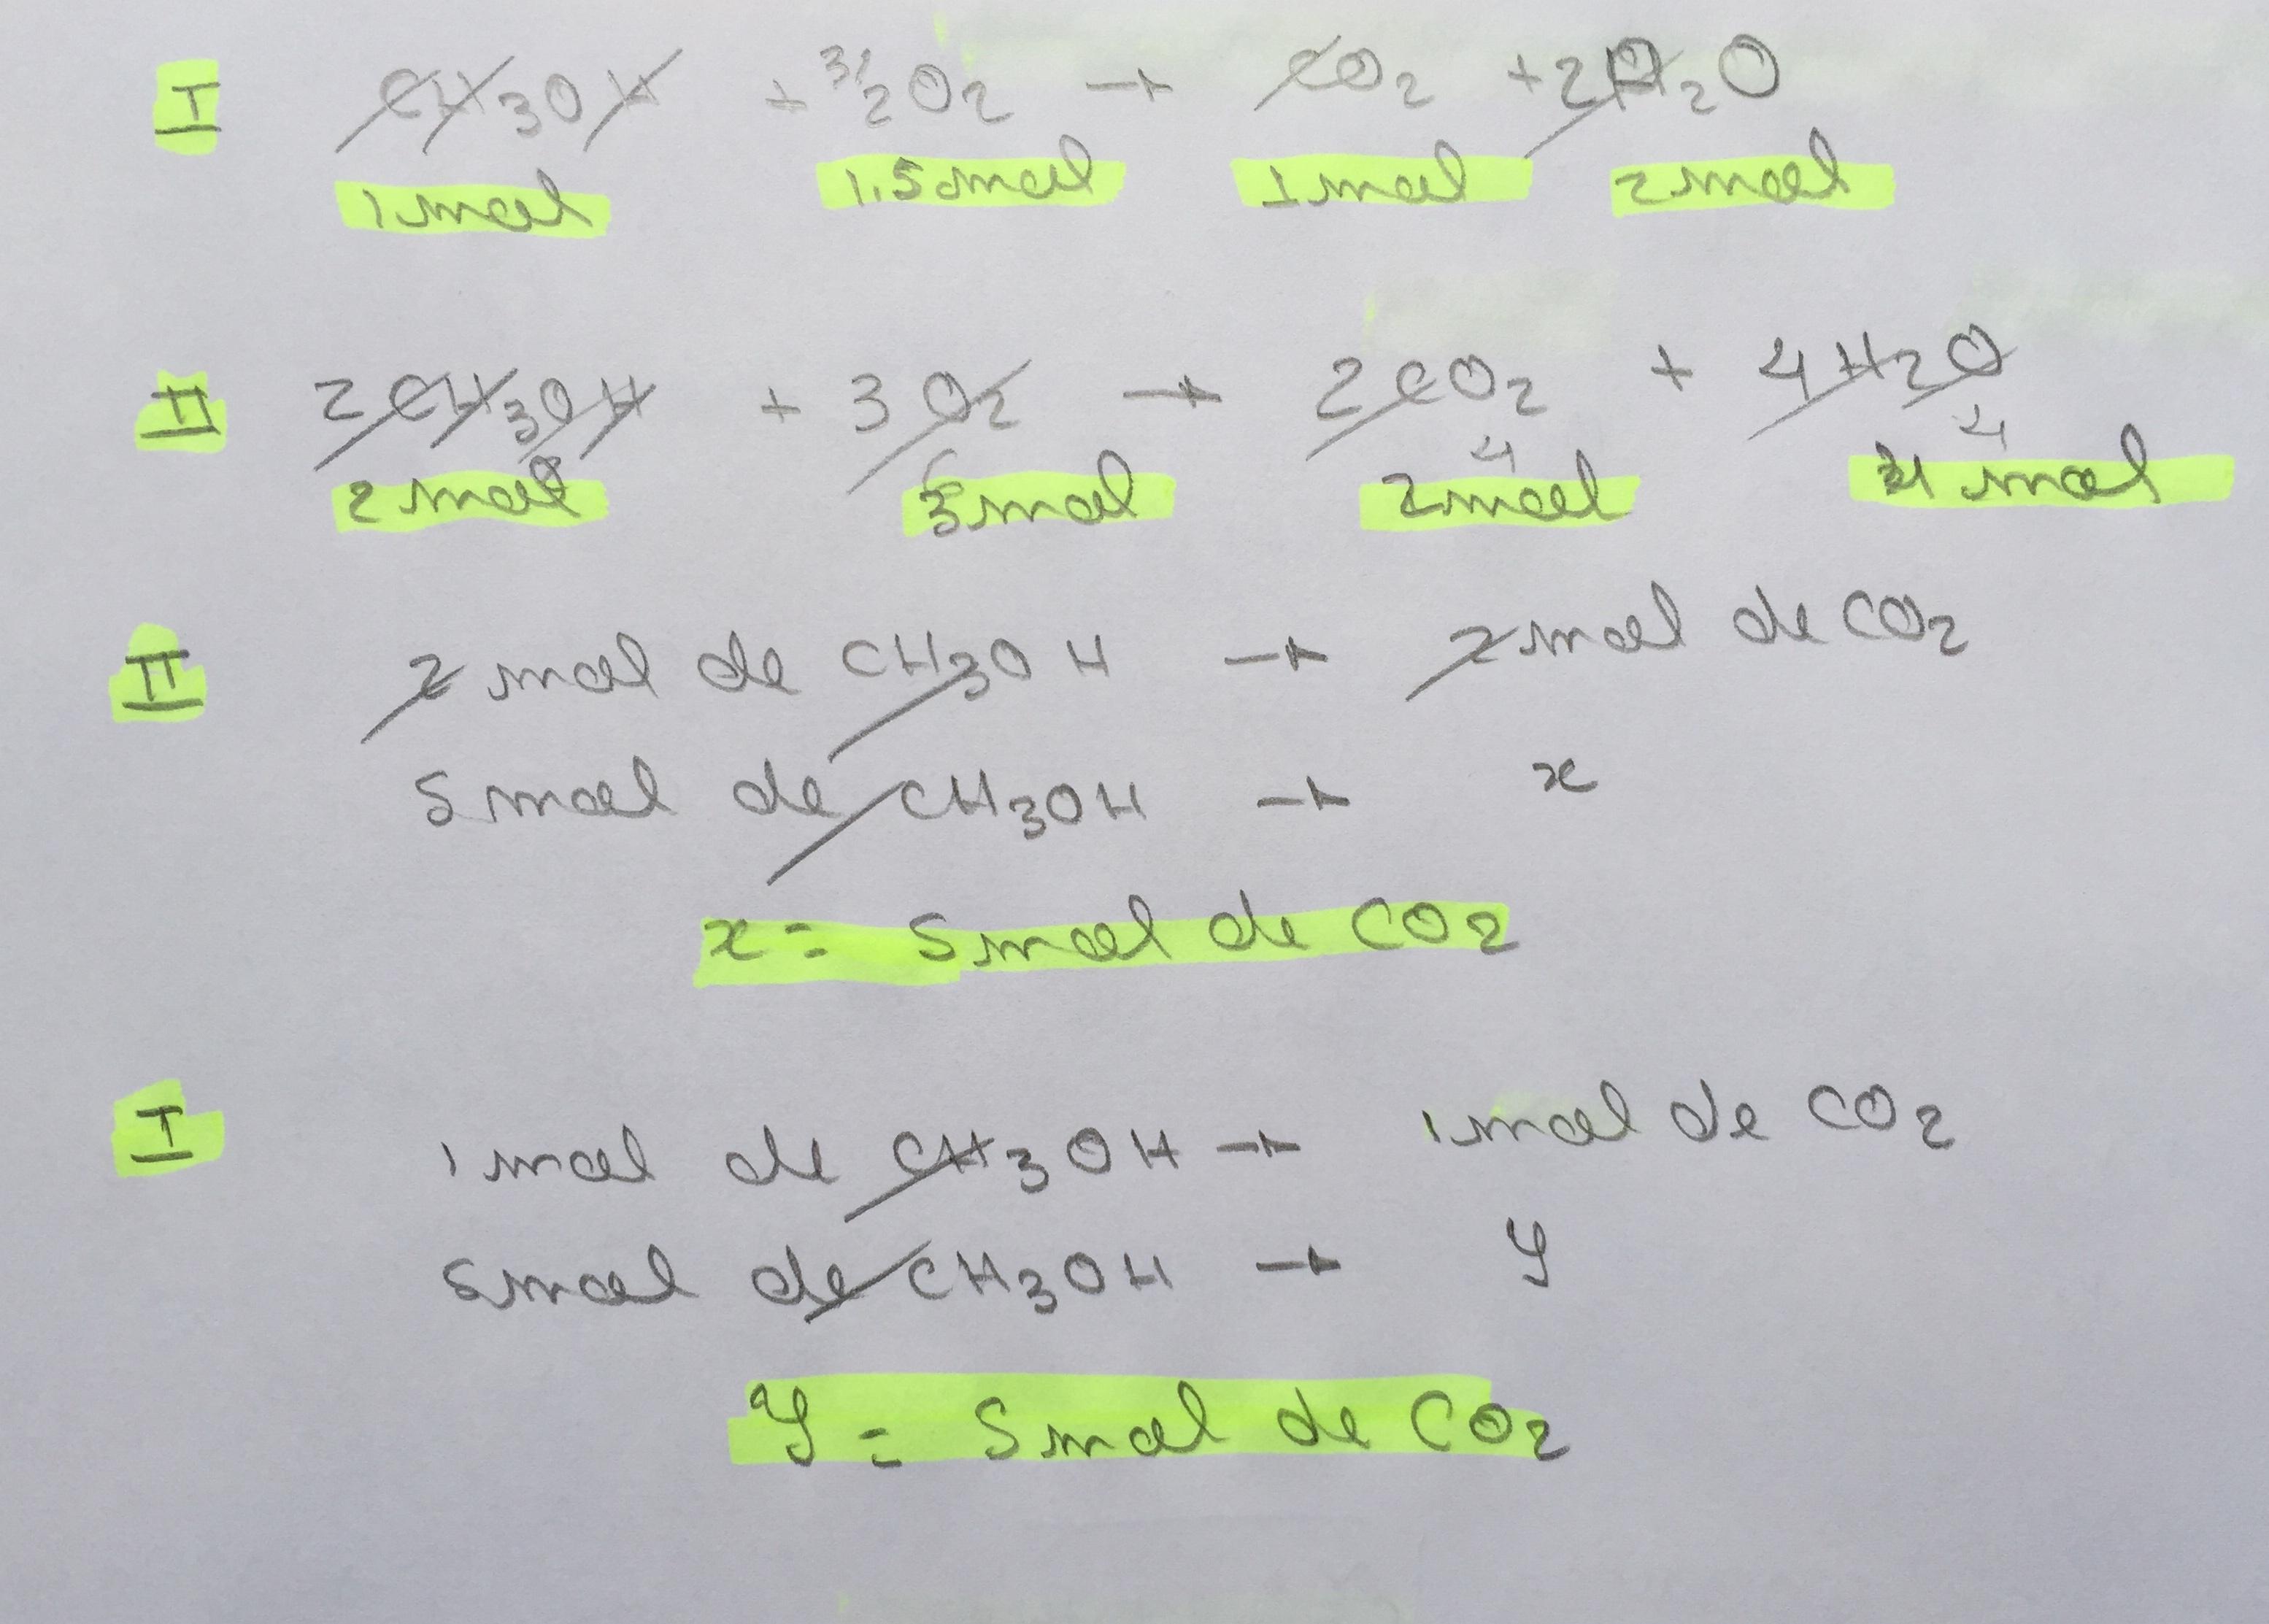 I CH3OH + 3/2 O2 → CO2 + 2H2O
1 mol 1.5 mol 1 mol 2 mol
II 2CH3OH + 3O2 → 2CO2 + 4H2O
6 4 4
2 mol 3 mol 2 mol 4 mol
II 2 mol de CH3OH → 2 mol de CO2
5 mol de CH3OH → x
x = 5 mol de CO2
I 1 mol de CH3OH → 1 mol de CO2
5 mol de CH3OH → y
y = 5 mol de CO2